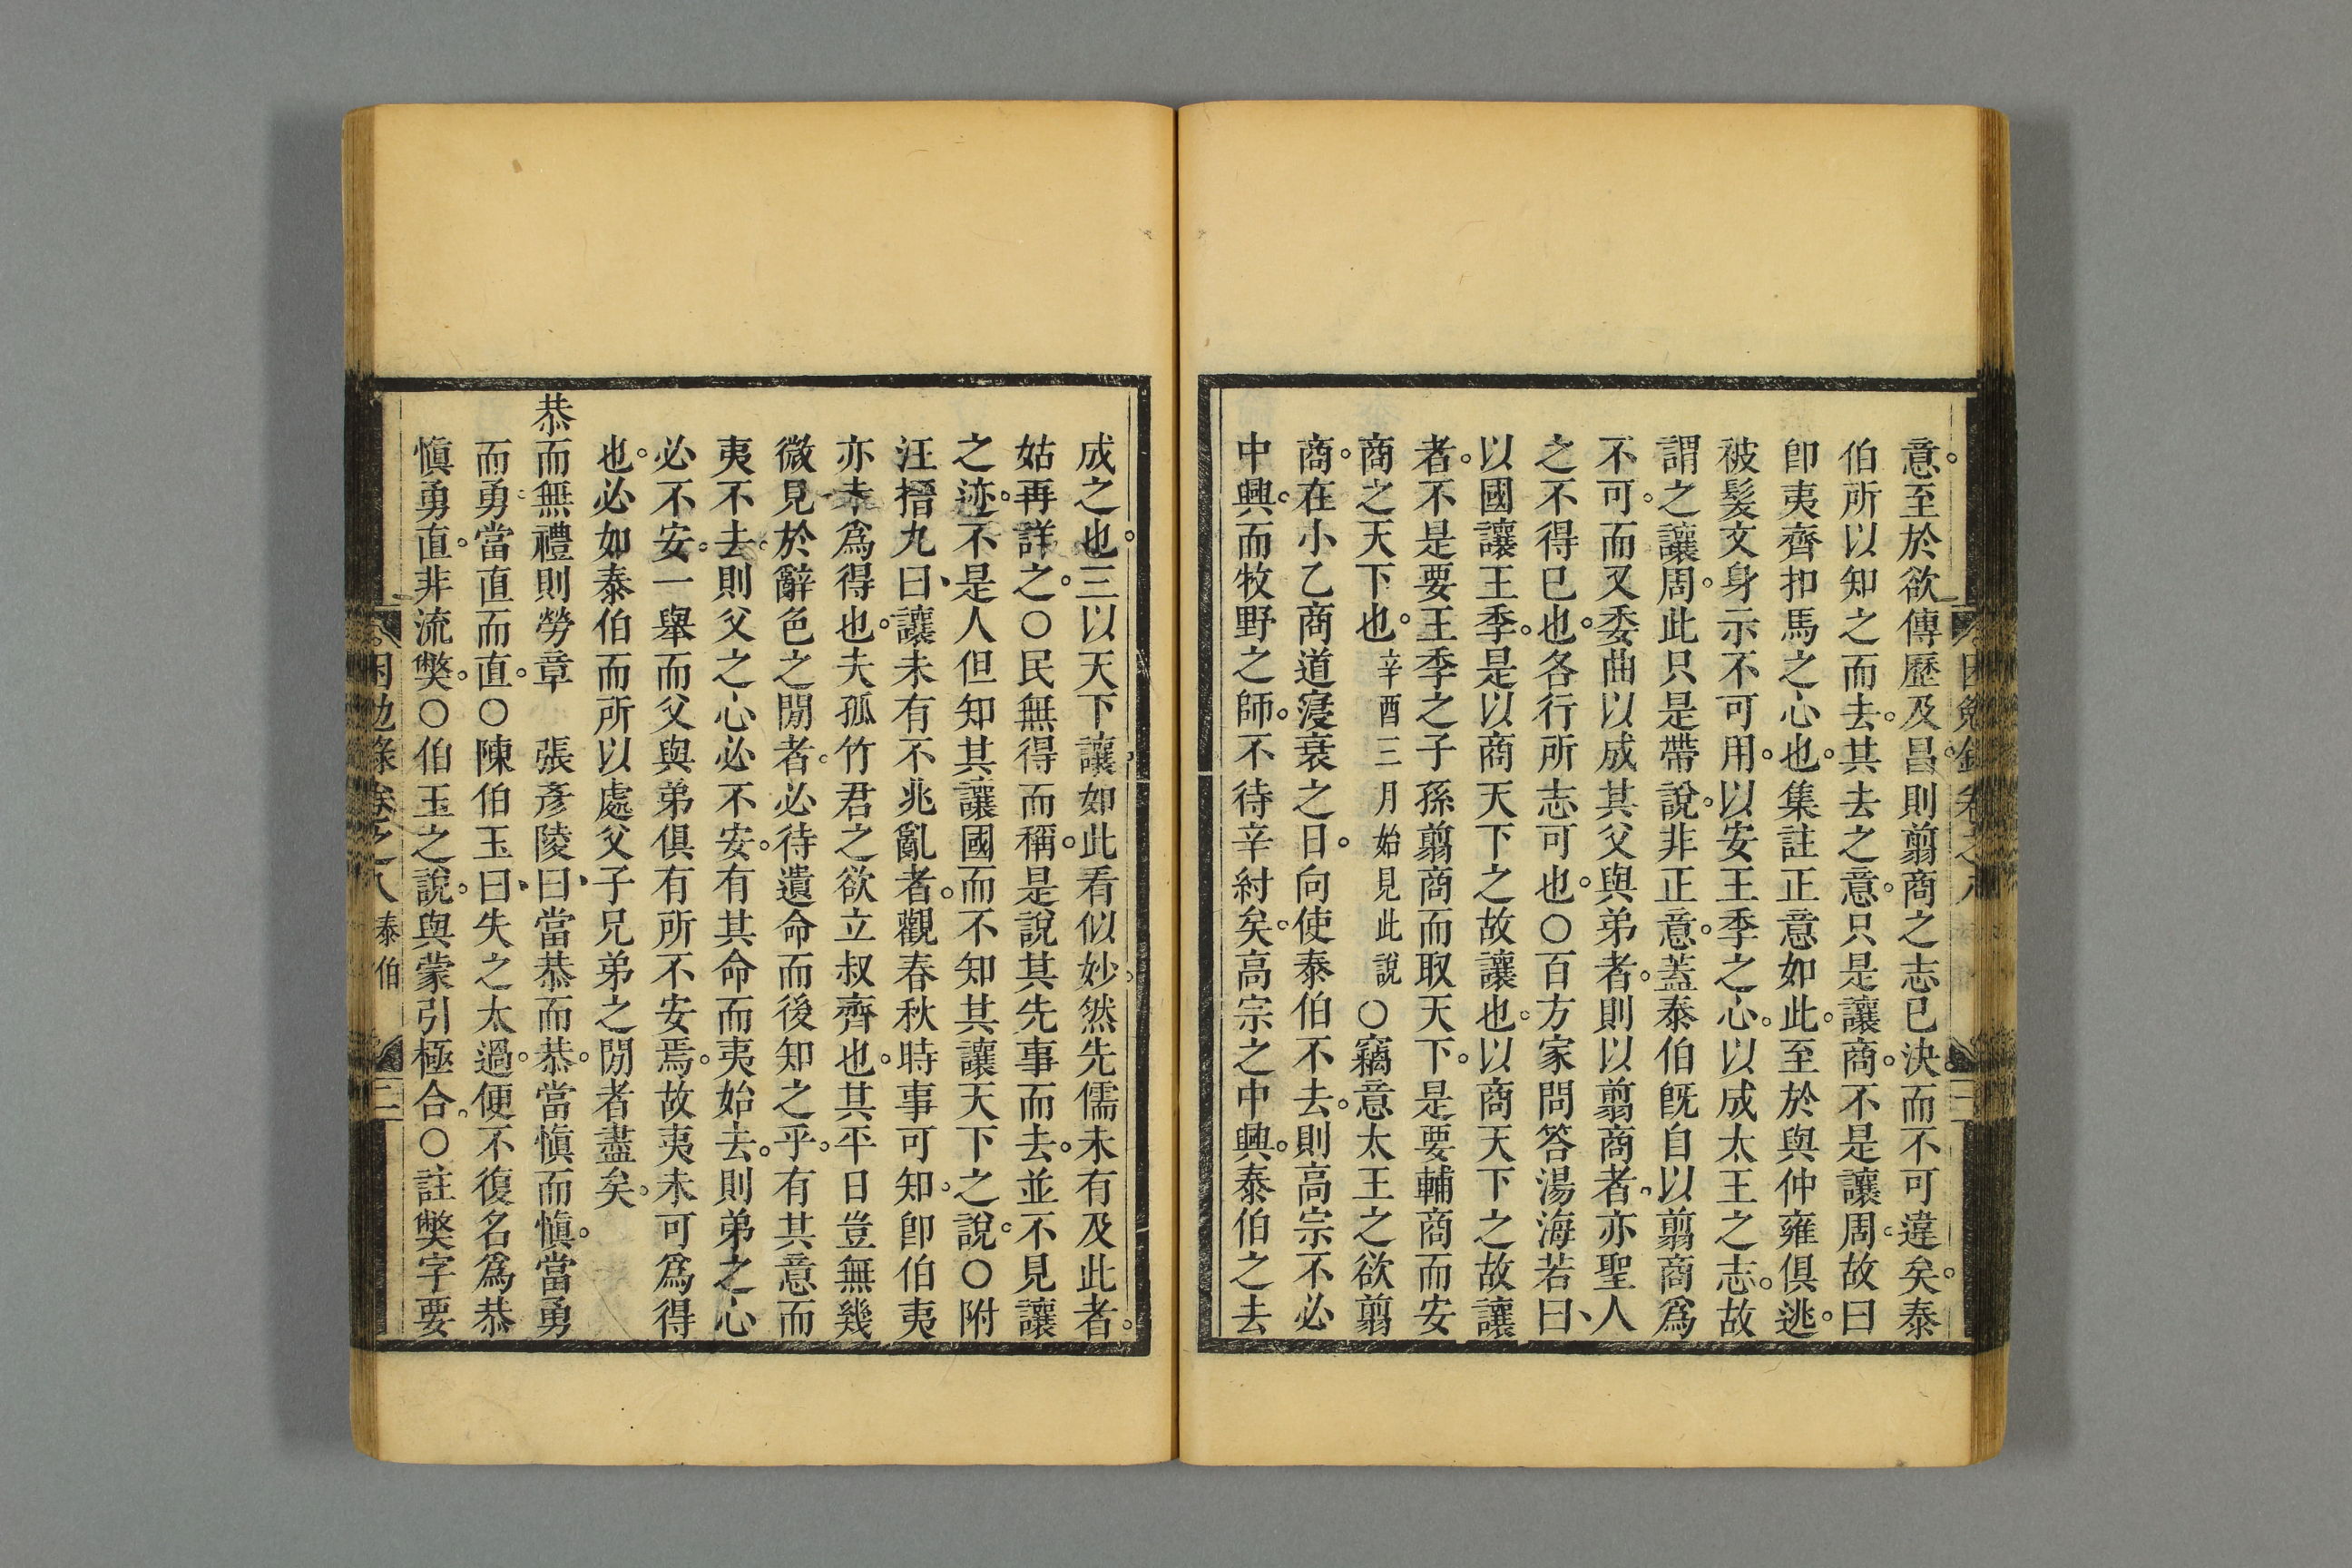 意。至於欲傳歷及昌。則翦商之志已決。而不可違矣。泰
伯所以知之而去。其去之意。只是讓商。不是讓周。故曰
卽夷齊扣馬之心也。集註正意如此。至於與仲雍俱逃。
被髮文身示不可用。以安王季之心。以成太王之志。故
謂之讓周。此只是帶說。非正意。蓋泰伯旣自以翦商爲
不可。而又委曲以成其父與弟者。則以翦商者、亦聖人
之不得已也。各行所志可也。○百方家問答湯海若曰、
以國讓王季。是以商天下之故讓也。以商天下之故讓
者。不是要王季之子孫翦商而取天下。是要輔商而安
商之天下也。辛酉三月始見此說○竊意太王之欲翦
商。在小乙商道寖衰之日。向使泰伯不去。則高宗不必
中興。而牧野之師。不待辛紂矣。高宗之中興。泰伯之去
成之也。三以天下讓、如此看似妙。然先儒未有及此者。
姑再詳之。○民無得而稱。是說其先事而去。並不見讓
之迹。不是人但知其讓國而不知其讓天下之說。○附
汪搢九曰、讓未有不兆亂者。觀春秋時事可知。卽伯夷
亦未爲得也。夫孤竹君之欲立叔齊也。其平日豈無幾
微見於辭色之閒者。必待遺命而後知之乎。有其意而
夷不去。則父之心必不安。有其命而夷始去。則弟之心
必不安。一舉而父與弟俱有所不安焉。故夷未可爲得
也。必如泰伯而所以處父子兄弟之閒者盡矣。
恭而無禮則勞章　張彥陵曰、當恭而恭。當愼而愼。當勇
而勇。當直而直。○陳伯玉曰、失之太過。便不復名爲恭
愼勇直。非流獘。○伯玉之說。與蒙引極合。○註獘字要
困勉錄卷之八　泰伯　二